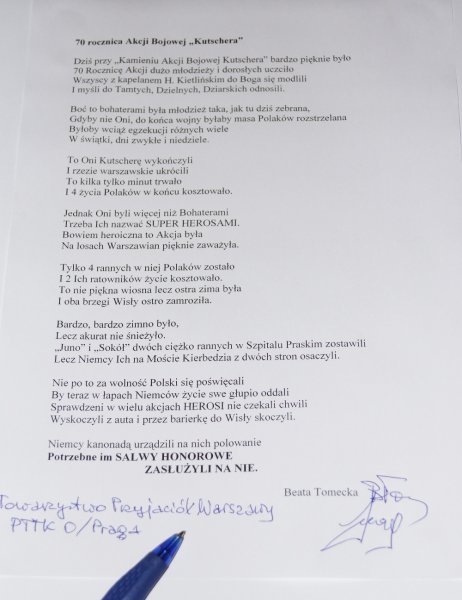 70 rocznica Akcji Bojowej „Kutschera”
Dziś przy „Kamieniu Akcji Bojowej Kutschera” bardzo pięknie było
70 Rocznicę Akcji dużo młodzieży i dorosłych uczciło
Wszyscy z kapelanem H. Kietlińskim do Boga się modlili
I myśli do Tamtych, Dzielnych, Dziarskich odnosili.
Boć to bohaterami była młodzież taka, jak tu dziś zebrana,
Gdyby nie Oni, do końca wojny byłaby masa Polaków rozstrzelana
Byłoby wciąż egzekucji różnych wiele
W świątki, dni zwykłe i niedziele.
To Oni Kutscherę wykończyli
I rzezie warszawskie ukrócili
To kilka tylko minut trwało
I 4 życia Polaków w końcu kosztowało.
Jednak Oni byli więcej niż Bohaterami
Trzeba Ich nazwać SUPER HEROSAMI.
Bowiem heroiczna to Akcja była
Na losach Warszawian pięknie zaważyła.
Tylko 4 rannych w niej Polaków zostało
I 2 Ich ratowników życie kosztowało.
To nie piękna wiosna lecz ostra zima była
I oba brzegi Wisły ostro zamroziła.
Bardzo, bardzo zimno było,
Lecz akurat nie śnieżyło.
„Juno” i „Sokół” dwóch ciężko rannych w Szpitalu Praskim zostawili
Lecz Niemcy Ich na Moście Kierbedzia z dwóch stron osaczyli.
Nie po to za wolność Polski się poświęcali
By teraz w łapach Niemców życie swe głupio oddali
Sprawdzeni w wielu akcjach HEROSI nie czekali chwili
Wyskoczyli z auta i przez barierkę do Wisły skoczyli.
Niemcy kanonadą urządzili na nich polowanie
Potrzebne im SALWY HONOROWE
ZASŁUŻYLI NA NIE.
Beata Tomecka
Towarzystwo Przyjaciół Warszawy
PTTK O/Praga